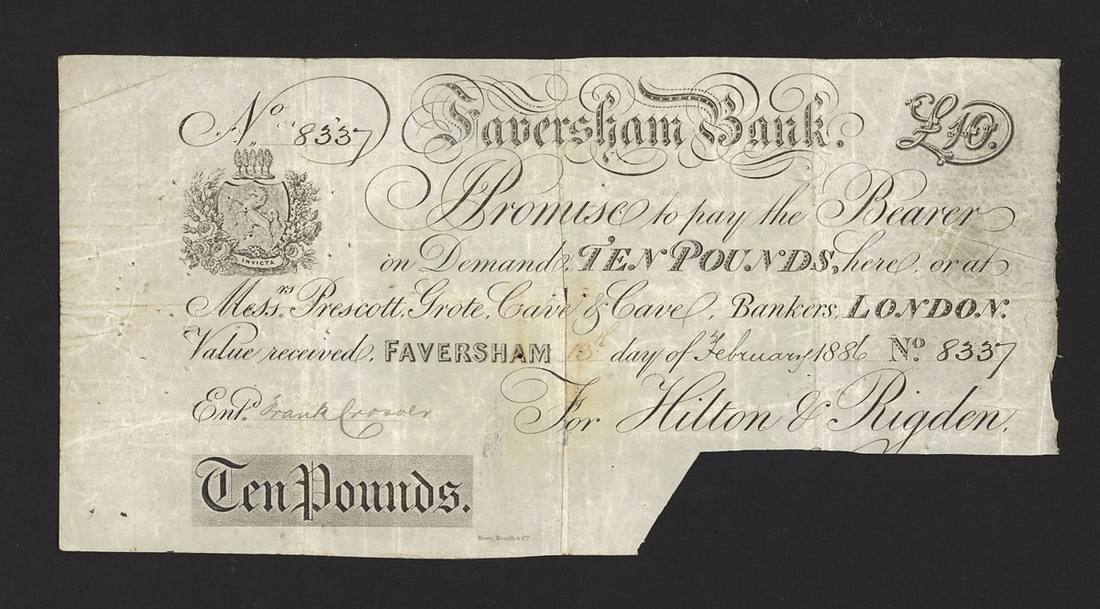 No 8337 Faversham Bank. £10.
I Promise to pay the Bearer
INVICTA
on Demand, TEN POUNDS, here, or at
Messrs Prescott, Grote, Cave & Cave, Bankers, LONDON.
Value received, FAVERSHAM 13th day of February 1886 No 8337
Entd. Frank Crosoer
For Hilton & Rigden.
Ten Pounds.